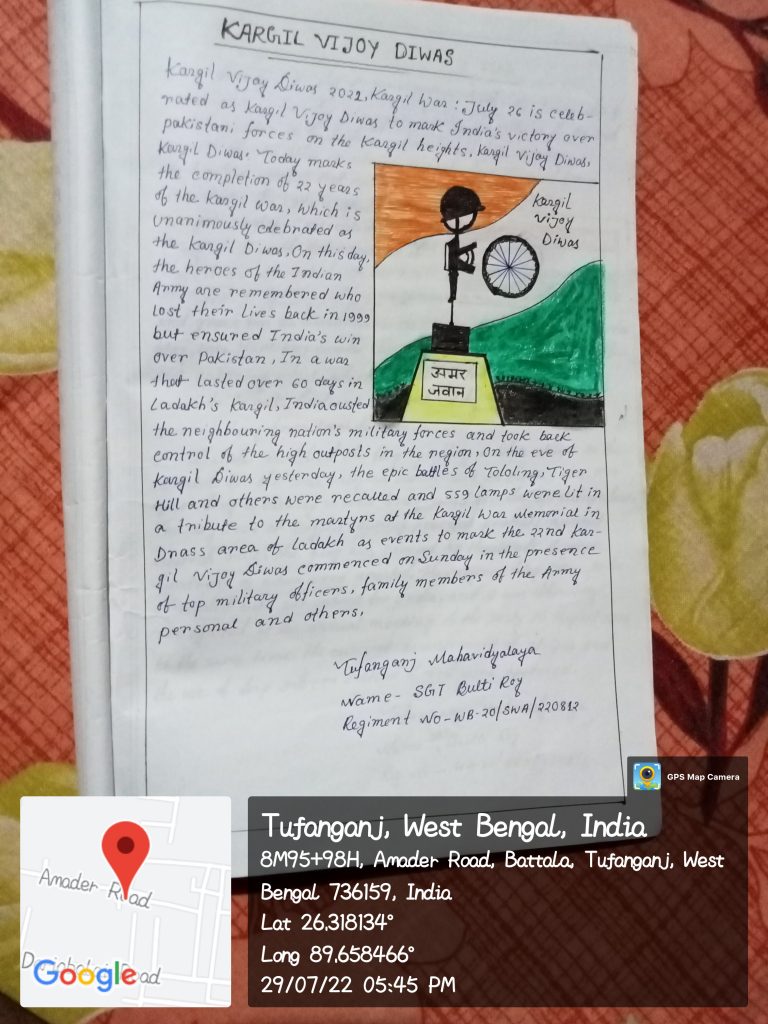 KARGIL VIJOY DIWAS
Kargil Vijay Diwas 2022, Kargil War : July 26 is celeb-
rated as Kargil Vijoy Diwas to mark India's victory over
pakistani forces on the Kargil heights, Kargil Vijay Diwas,
Kargil Diwas. Today marks
the completion of 22 years
of the Kargil War, which is
unanimously celebrated as
the Kargil Diwas. On this day,
the heroes of the Indian
Army are remembered who
Lost their Lives back in 1999
but ensured India's win
over Pakistan, In a war
that lasted over 60 days in
Ladakh's Kargil, India ousted
the neighbouring nation's military forces and took back
control of the high outposts in the region, On the eve of
Kargil Diwas yesterday, the epic battles of Tololing, Tiger
Hill and others were recalled and 559 lamps were lit in
a tribute to the martyrs at the Kargil War Memorial in
Drass area of ladakh as events to mark the 22nd Kar-
gil Vijoy Diwas commenced on Sunday in the presence
of top military officers, family members of the Army
personal and others.
Kargil
Vijoy
Diwas
अमर
जवान
Tufanganj Mahavidyalaya
Name- SGT Bulti Roy
Regiment No-WB-20/SWA/220812
GPS Map Camera
Tufanganj, West Bengal, India
8M95+98H, Amader Road, Battala, Tufanganj, West
Bengal 736159, India
Lat 26.318134°
Long 89.658466°
29/07/22 05:45 PM
Amader Road
Road
Google